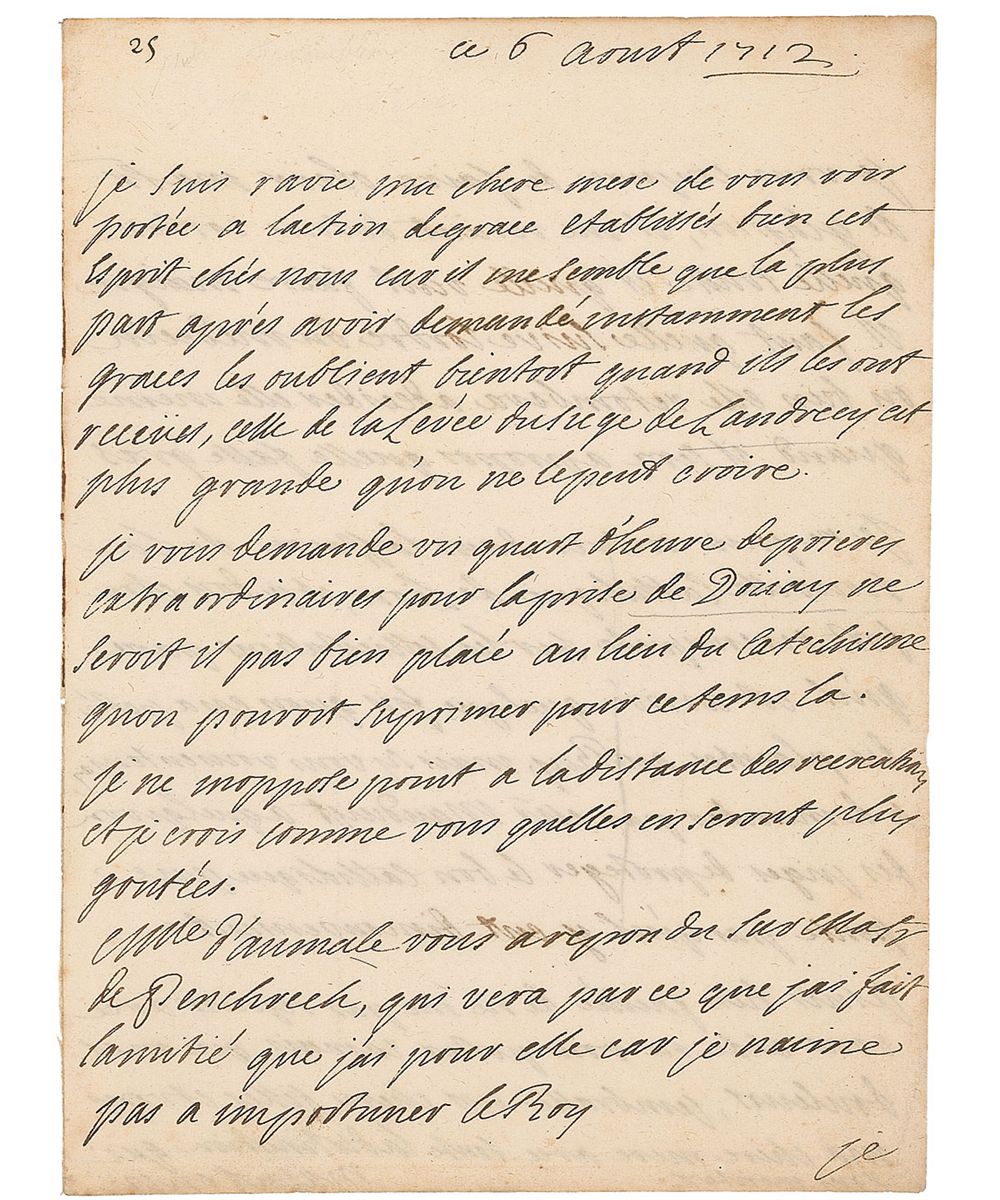 25
ce 6 aoust 1712
je suis ravie ma chere mere de vous voir
portée a laction degrace etablissés bien cet
Esprit chés nous car il me semble que la plus
part aprés avoir demandé instamment les
graces les oublient bientost quand ils les ont
receües, celle de la Levée du siege de Landrecy est
plus grande qu'on ne le peut croire.
je vous demande vn quart d'heure de prieres
extraordinaires pour la prise de Doüay ne
seroit il pas bien placé au lieu du Catechisme
quon pouroit suprimer pour ce tems la.
je ne moppose point a la distance des recreations
et je crois comme vous quelles en seront plus
goutées.
Mlle d'aumale vous a repondu sur
de Penchrech, qui vera par ce que jai fait
lamitié que j'ai pour elle car je naime
pas a importuner le Roy
je